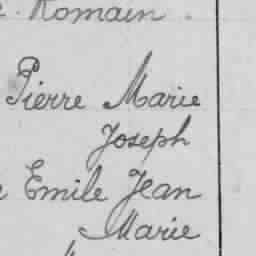 Romain
Pierre Marie
Joseph
Emile Jean
Marie